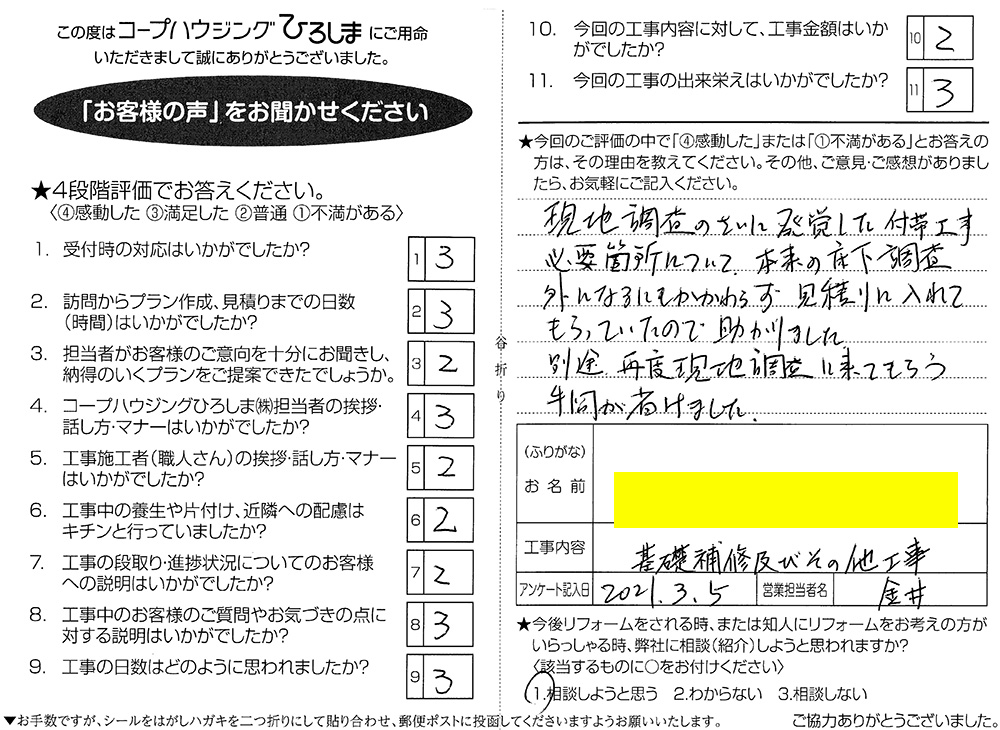 この度はコープハウジングひろしまにご用命
いただきまして誠にありがとうございました。
「お客様の声」をお聞かせください
★4段階評価でお答えください。
〈④感動した ③満足した ②普通 ①不満がある〉
1. 受付時の対応はいかがでしたか?
1 3
2. 訪問からプラン作成、見積りまでの日数
(時間)はいかがでしたか?
2 3
3. 担当者がお客様のご意向を十分にお聞きし、
納得のいくプランをご提案できたでしょうか。
3 2
4. コープハウジングひろしま㈱担当者の挨拶・
話し方・マナーはいかがでしたか?
4 3
5. 工事施工者(職人さん)の挨拶・話し方・マナー
はいかがでしたか?
5 2
6. 工事中の養生や片付け、近隣への配慮は
キチンと行っていましたか?
6 2
7. 工事の段取り・進捗状況についてのお客様
への説明はいかがでしたか?
7 2
8. 工事中のお客様のご質問やお気づきの点に
対する説明はいかがでしたか?
8 3
9. 工事の日数はどのように思われましたか?
9 3
谷折り
10. 今回の工事内容に対して、工事金額はいか
がでしたか?
10 2
11. 今回の工事の出来栄えはいかがでしたか?
11 3
★今回のご評価の中で「④感動した」または「①不満がある」とお答えの
方は、その理由を教えてください。その他、ご意見・ご感想がありまし
たら、お気軽にご記入ください。
現地調査のさいに発覚した付帯工事
必要箇所について、本来の床下調査
外になるにもかかわらず 見積りに入れて
もらっていたので助かりました
別途 再度現地調査に来てもらう
手間が省けました.
(ふりがな)
お名前
工事内容 基礎補修及びその他工事
アンケート記入日 2021.3.5 営業担当者名 金井
★今後リフォームをされる時、または知人にリフォームをお考えの方が
いらっしゃる時、弊社に相談(紹介)しようと思われますか?
〈該当するものに○をお付けください〉
1.相談しようと思う 2.わからない 3.相談しない
▼お手数ですが、シールをはがしハガキを二つ折りにして貼り合わせ、郵便ポストに投函してくださいますようお願いいたします。
ご協力ありがとうございました。